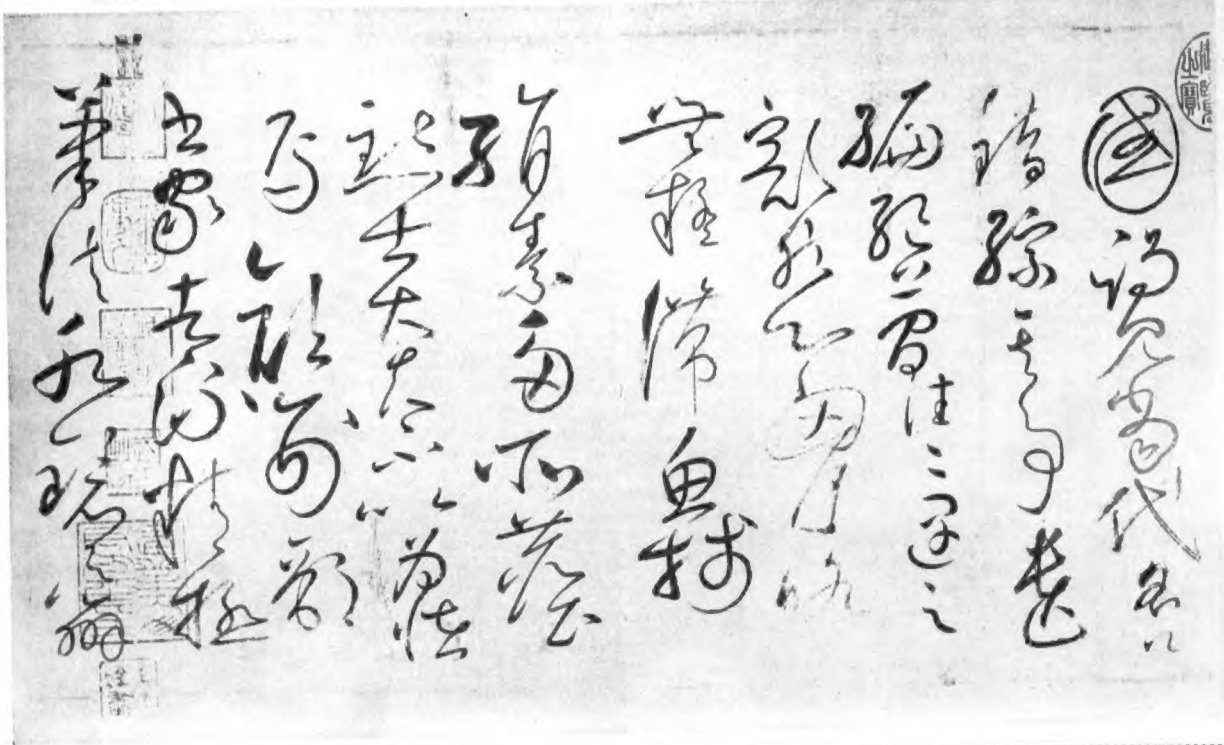 國謁見當代名公
錯綜其事遺
編絕簡往〻遇之
豁然心胸略
無疑滯魚箋
絹素多所塵
點士大夫不以為怪
焉顏刑部
書家者流精極
筆法水鏡之辨